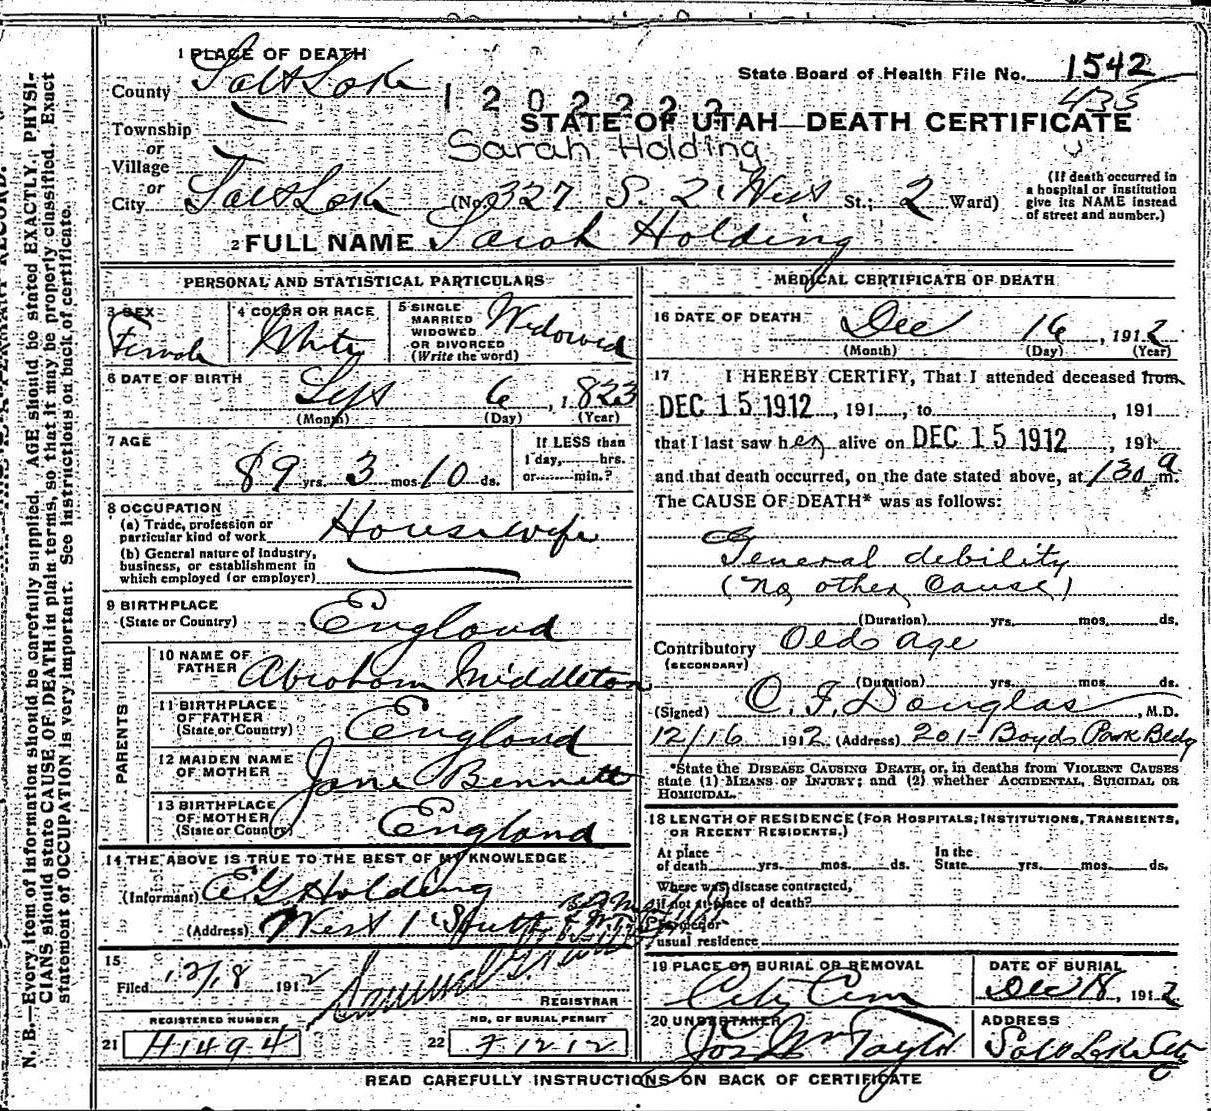 1 PLACE OF DEATH
County Salt Lake
State Board of Health File No. 1542
435
1202222
STATE OF UTAH—DEATH CERTIFICATE
Township
or
Village
or
Sarah Holding
City Salt Lake (No. 327 S. 2 West St.; 2 Ward)
(If death occurred in a hospital or institution give its NAME instead of street and number.)
2 FULL NAME Sarah Holding
PERSONAL AND STATISTICAL PARTICULARS
3 SEX Female
4 COLOR OR RACE White
5 SINGLE MARRIED WIDOWED OR DIVORCED (Write the word) Widowed
6 DATE OF BIRTH
Sept 6, 1823
(Month) (Day) (Year)
7 AGE
89 yrs. 3 mos. 10 ds.
If LESS than 1 day, hrs. or min.?
8 OCCUPATION
(a) Trade, profession or particular kind of work Housewife
(b) General nature of industry, business, or establishment in which employed (or employer)
9 BIRTHPLACE (State or Country) England
PARENTS
10 NAME OF FATHER Abraham Middleton
11 BIRTHPLACE OF FATHER (State or Country) England
12 MAIDEN NAME OF MOTHER Jane Bennett
13 BIRTHPLACE OF MOTHER (State or Country) England
14 THE ABOVE IS TRUE TO THE BEST OF MY KNOWLEDGE
(Informant) E G Holding
(Address) West 1 South
15
Filed 12/18 1912
REGISTRAR
REGISTERED NUMBER
21 H1494
NO. OF BURIAL PERMIT
22 F1212
MEDICAL CERTIFICATE OF DEATH
16 DATE OF DEATH Dec 16, 1912
(Month) (Day) (Year)
17 I HEREBY CERTIFY, That I attended deceased from
DEC 15 1912, 191 , to , 191
that I last saw her alive on DEC 15 1912, 191
and that death occurred, on the date stated above, at 130 a m.
The CAUSE OF DEATH* was as follows:
General debility
(No other Cause)
(Duration) yrs. mos. ds.
Contributory Old age
(SECONDARY)
(Duration) yrs. mos. ds.
(Signed) O. F. Douglas, M.D.
12/16 1912 (Address) 201 Boyds Park Bldg
*State the DISEASE CAUSING DEATH, or, in deaths from VIOLENT CAUSES state (1) MEANS OF INJURY; and (2) whether ACCIDENTAL, SUICIDAL OR HOMICIDAL.
18 LENGTH OF RESIDENCE (FOR HOSPITALS, INSTITUTIONS, TRANSIENTS, OR RECENT RESIDENTS.)
At place of death yrs. mos. ds. In the State yrs. mos. ds.
Where was disease contracted, if not at place of death?
Former or usual residence
19 PLACE OF BURIAL OR REMOVAL City Cem
DATE OF BURIAL Dec 18, 1912
20 UNDERTAKER Jos Wm Taylor
ADDRESS Salt Lake City
READ CAREFULLY INSTRUCTIONS ON BACK OF CERTIFICATE
N. B.—Every item of information should be carefully supplied. AGE should be stated EXACTLY. PHYSI-
CIANS should state CAUSE OF DEATH in plain terms, so that it may be properly classified. Exact
statement of OCCUPATION is very important. See instructions on back of certificate.